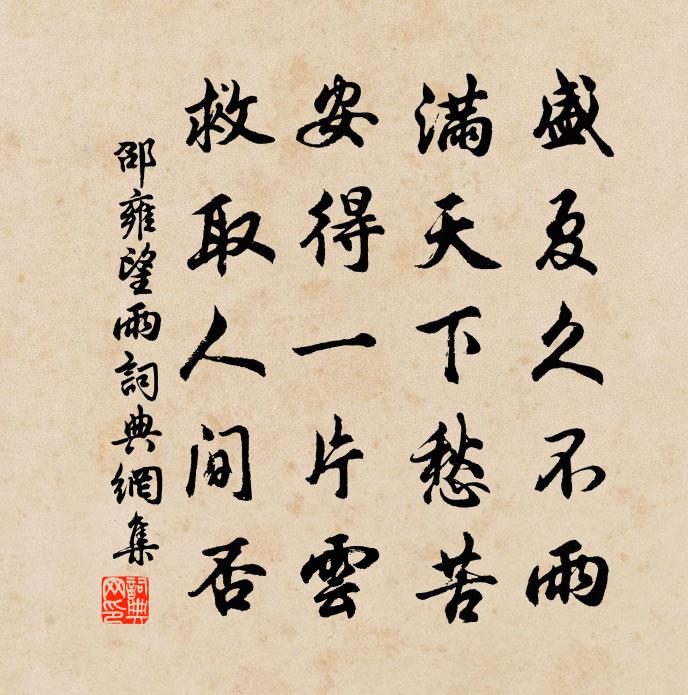 盛夏久不雨
滿天下愁苦
安得一片雲
救取人間否
邵雍望雨詞典網集
詞典網印